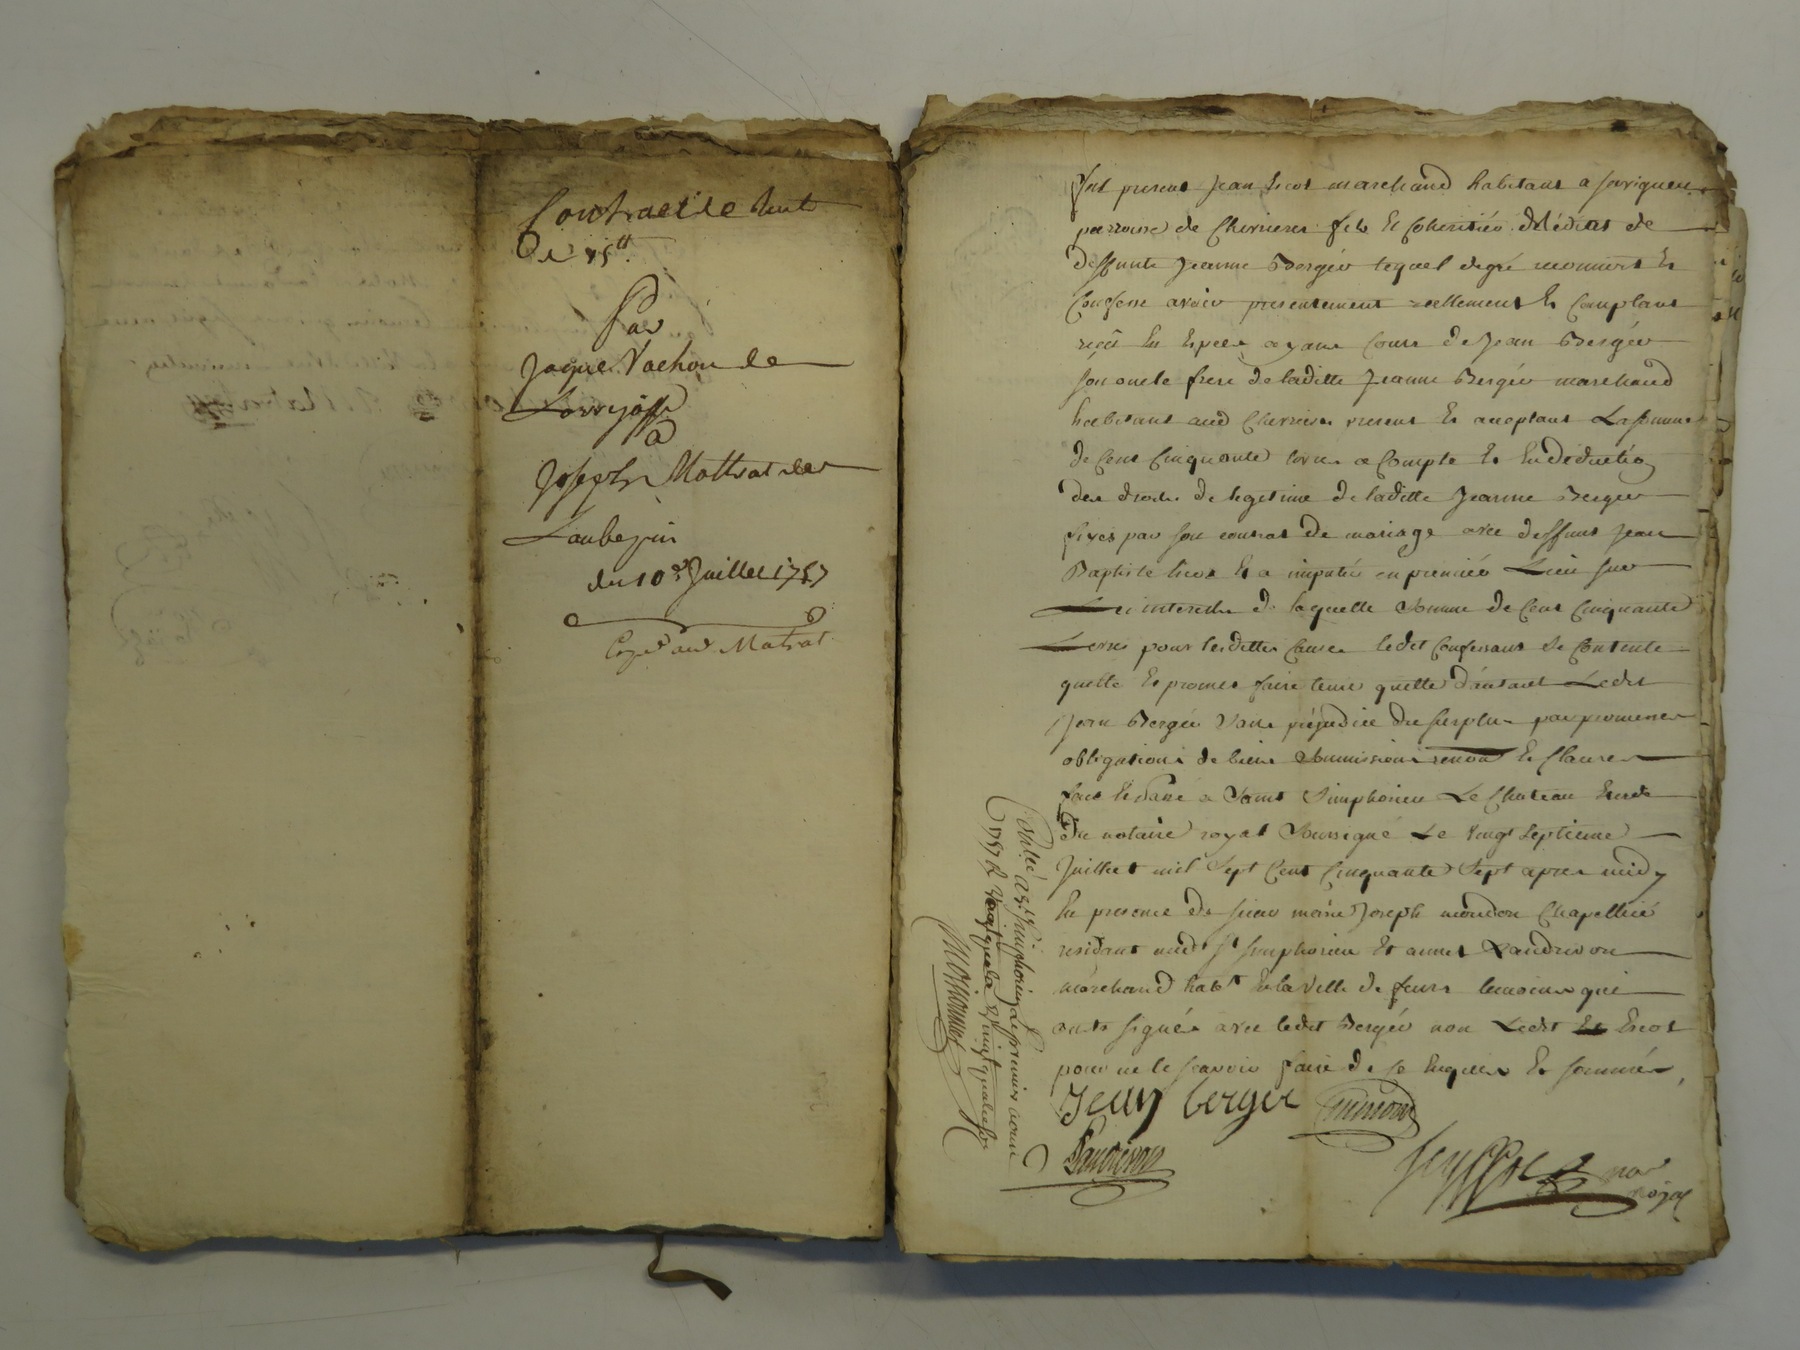 Contract de vente
De 75ᵗᵗ
Par
Jaque Vachon de
Lorrejasse
a
Joseph Mattrat de
Laubepin
du 10ᵉ Juillet 1757
Exped aud Matrat
fut present Jean Escot marchand habitant a
parroisse de Chevrieres fils et coheritié de
deffunte Jeanne Bergér lequel degré reconnoit et
confesse avoir presentement reellement et comptant
reçû en espece ayant cours de Jean Bergér
son oncle frere de laditte Jeanne Bergér marchand
habitant aud Chevriere present et acceptant La somme
de Cent Cinquante livre a compte et en deduction
des droits de legitime de laditte Jeanne Berger
fixés par son contrat de mariage avec deffunt Jean
Baptiste Escot et a imputér en premiér Lieu sur
Les interests de laquelle Somme de Cent Cinquante
Livres pour lesdittes Causes ledit Confessant se Contente
quitte et promet faire tenir quitte d'autant Ledit
Jean Bergér Sans préjudice du surplus par promesses
obligations de biens Soummissions renon et Clauses
fait et passé a Saint Simphorien Le Chateau Etude
Du notaire royal Soussigné Le Vingt Septieme
Juillet mil Sept Cent Cinquante Sept apres midy
En presence de sieur Joseph mondon Chapellié
residant aud St Simphorien et annet Landrivon
marchand habᵗ En la Ville de feurs temoins qui
ont signés avec ledit Bergér non Ledit Escot
pour ne le scavoir faire de ce Enquis et sommés
Jean berger
Landrivon
noᵉ
Royal
Conlé a St Simphorien Le premier aoust
1757 R vingt quatre